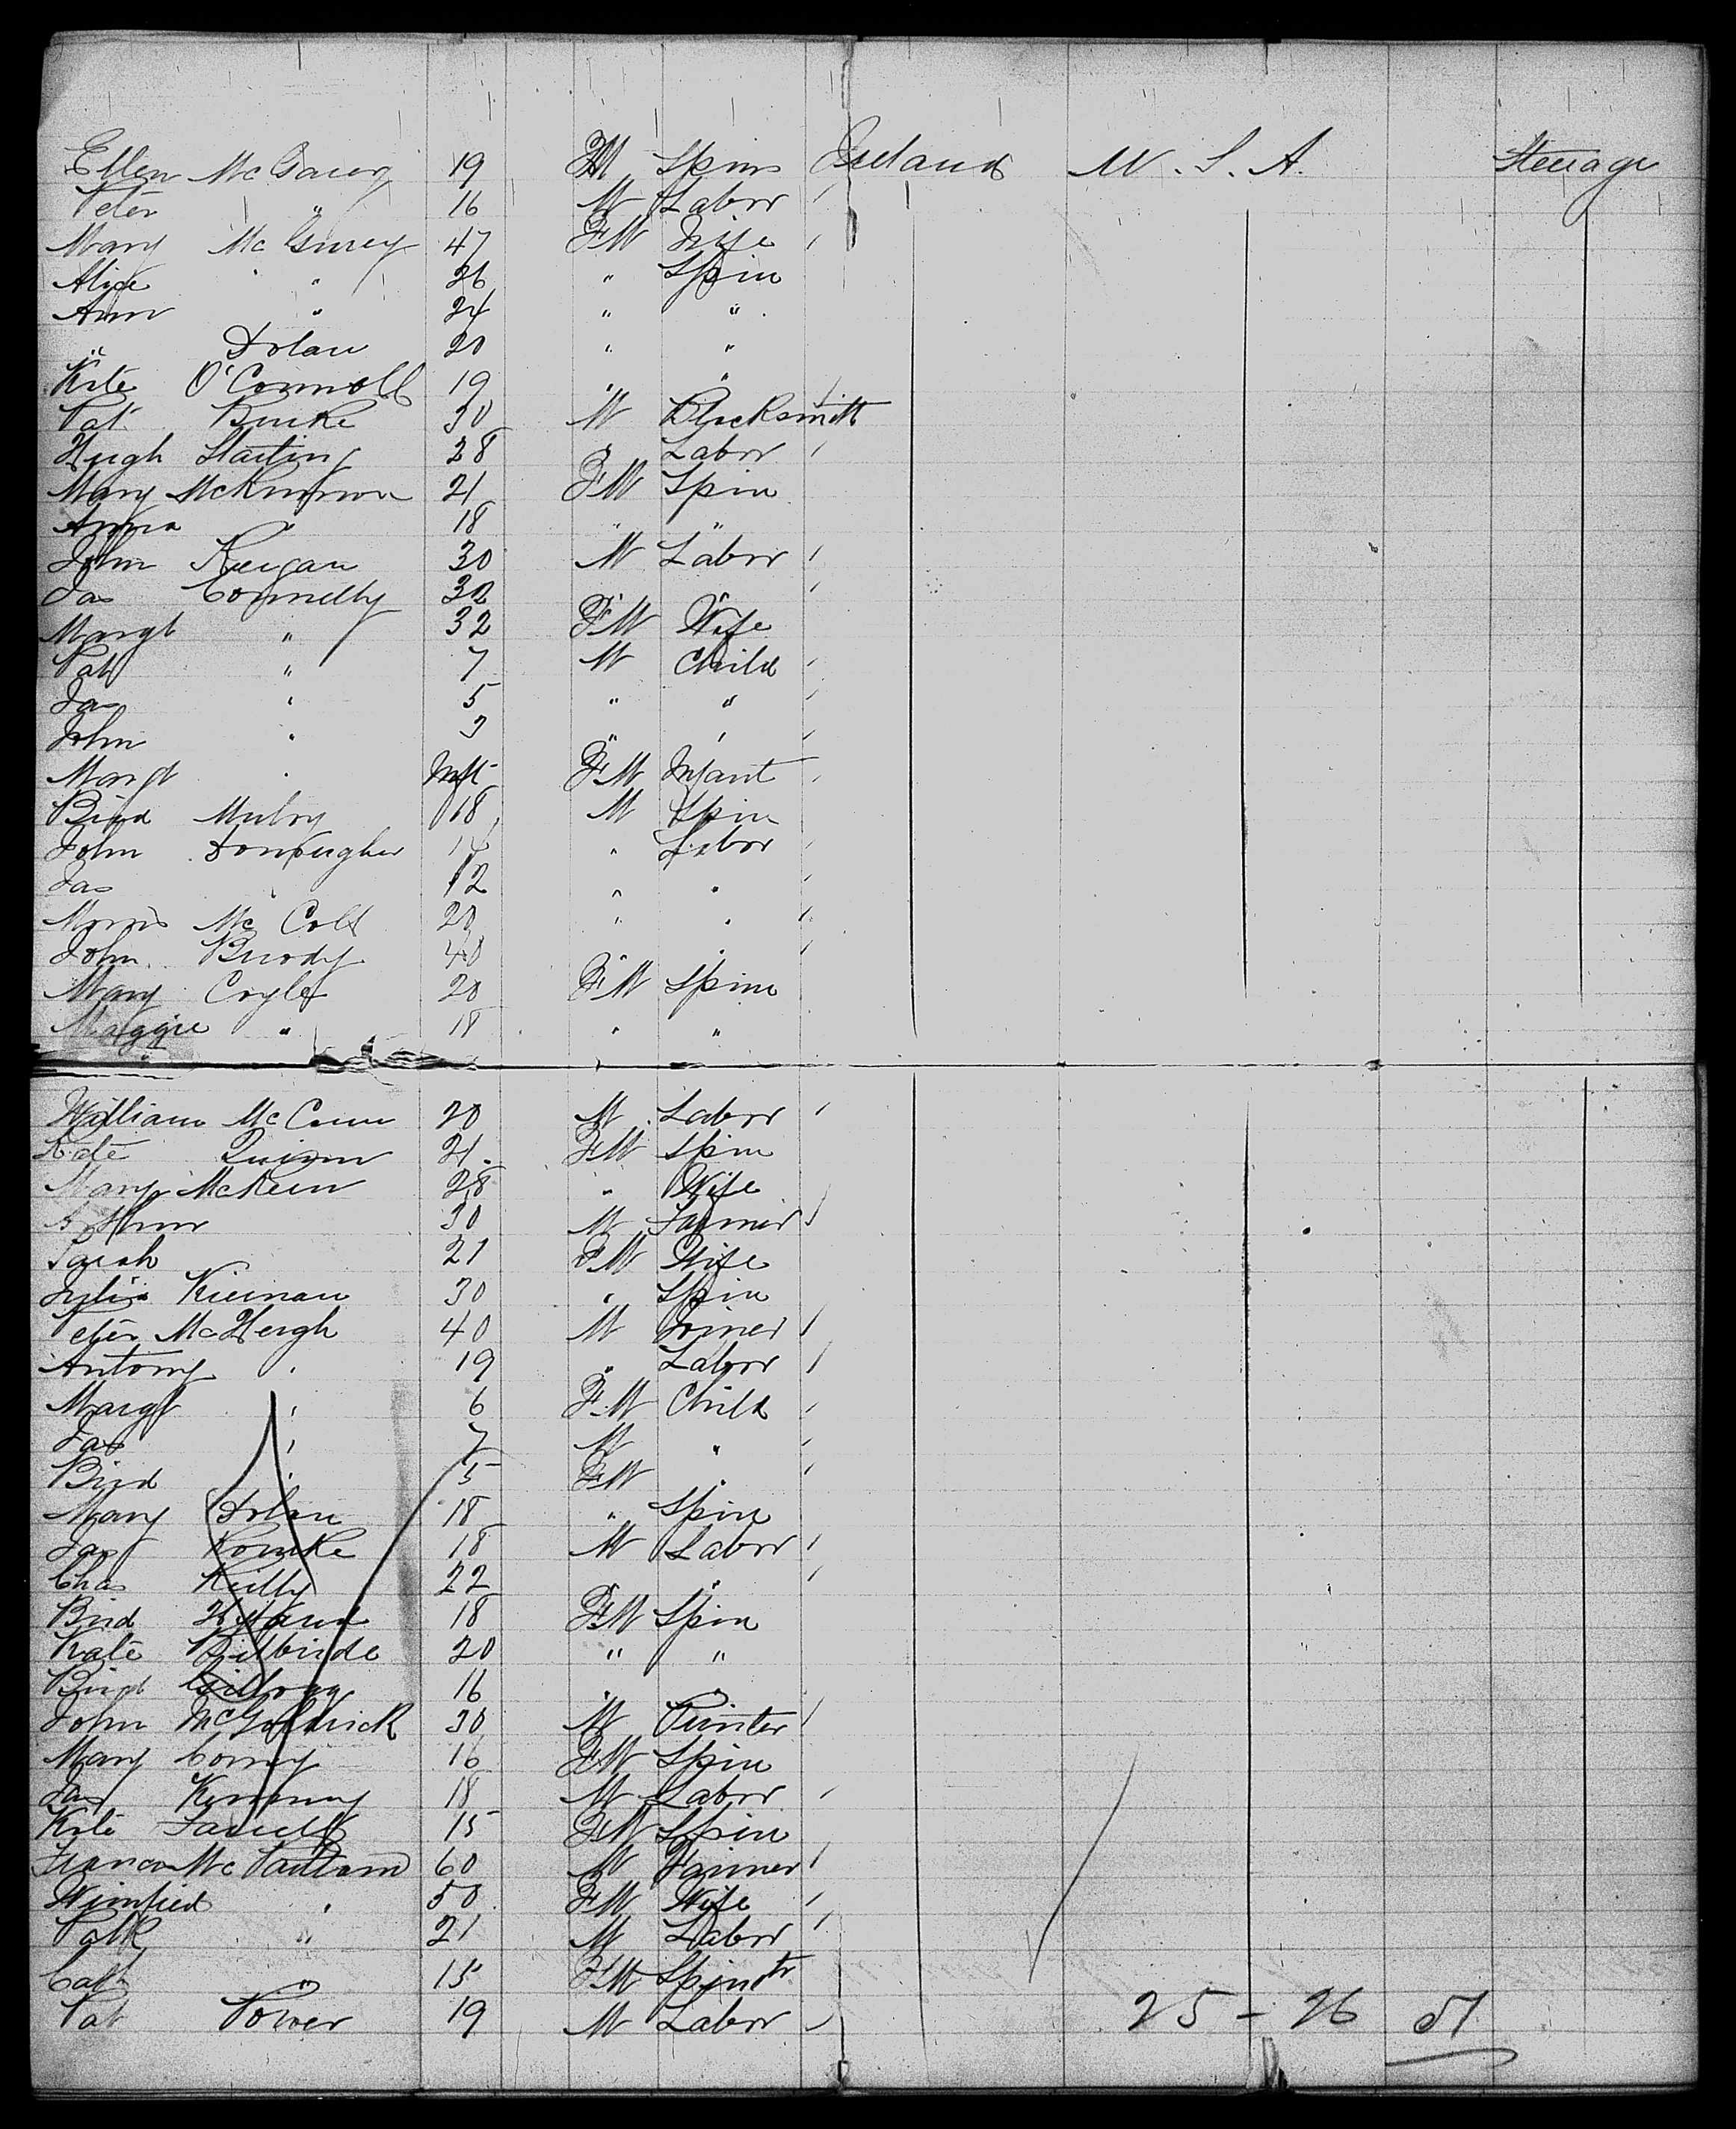 Ellen McGaury 19 FM Spins Ireland U.S.A. Steerage
Peter " 16 M Labor
Mary McGurey 47 FM Wife
Alice " 26 " Spin
Ann " 24 " "
" Dolan 20 " "
Kate O'Connell 19 " "
Pat Burke 30 M Blacksmith
Hugh 28 " Labor
Mary McKinnon 21 FM Spin
Anna " 18 " "
John Keegan 30 M Labor
Jas Connelly 32 " "
Margt " 32 FM Wife
Pat " 7 M Child
Jas " 5 " "
John " 3 " "
Margt " Inft FM Infant
Brid Mulry 18 M Spin
John 14 " Labor
Jas 12 " "
Morris Mc Colt 20 " "
John Brody 40 " "
Mary Coyle 20 FM Spin
Maggie " 18 " "
William McCann 20 M Labor
Kate Quinn 21 FM Spin
Mary McKeen 28 " Wife
Arthur 30 M Farmer
Sarah 21 FM Wife
Julia Kiernan 30 " Spin
Peter McHeugh 40 M Joiner
Antony " 19 " Labor
Margt " 6 FM Child
Jas " 7 M "
Brid " 5 FM "
Mary Dolan 18 " Spin
Jas Rourke 18 M Labor
Chas Reilly 22 " "
Brid 18 FM Spin
Kate Kilbride 20 " "
Brid 16 " "
John McGoldrick 30 M Printer
Mary Corry 16 FM Spin
Jas Kenny 18 M Labor
Kate Farrelly 15 FM Spin
Francis Mc Partland 60 M Farmer
Winifred " 50 FM Wife
Patk " 21 M Labor
Cath " 15 FM Spinstr
Pat Power 19 M Labor
25 - 26 51